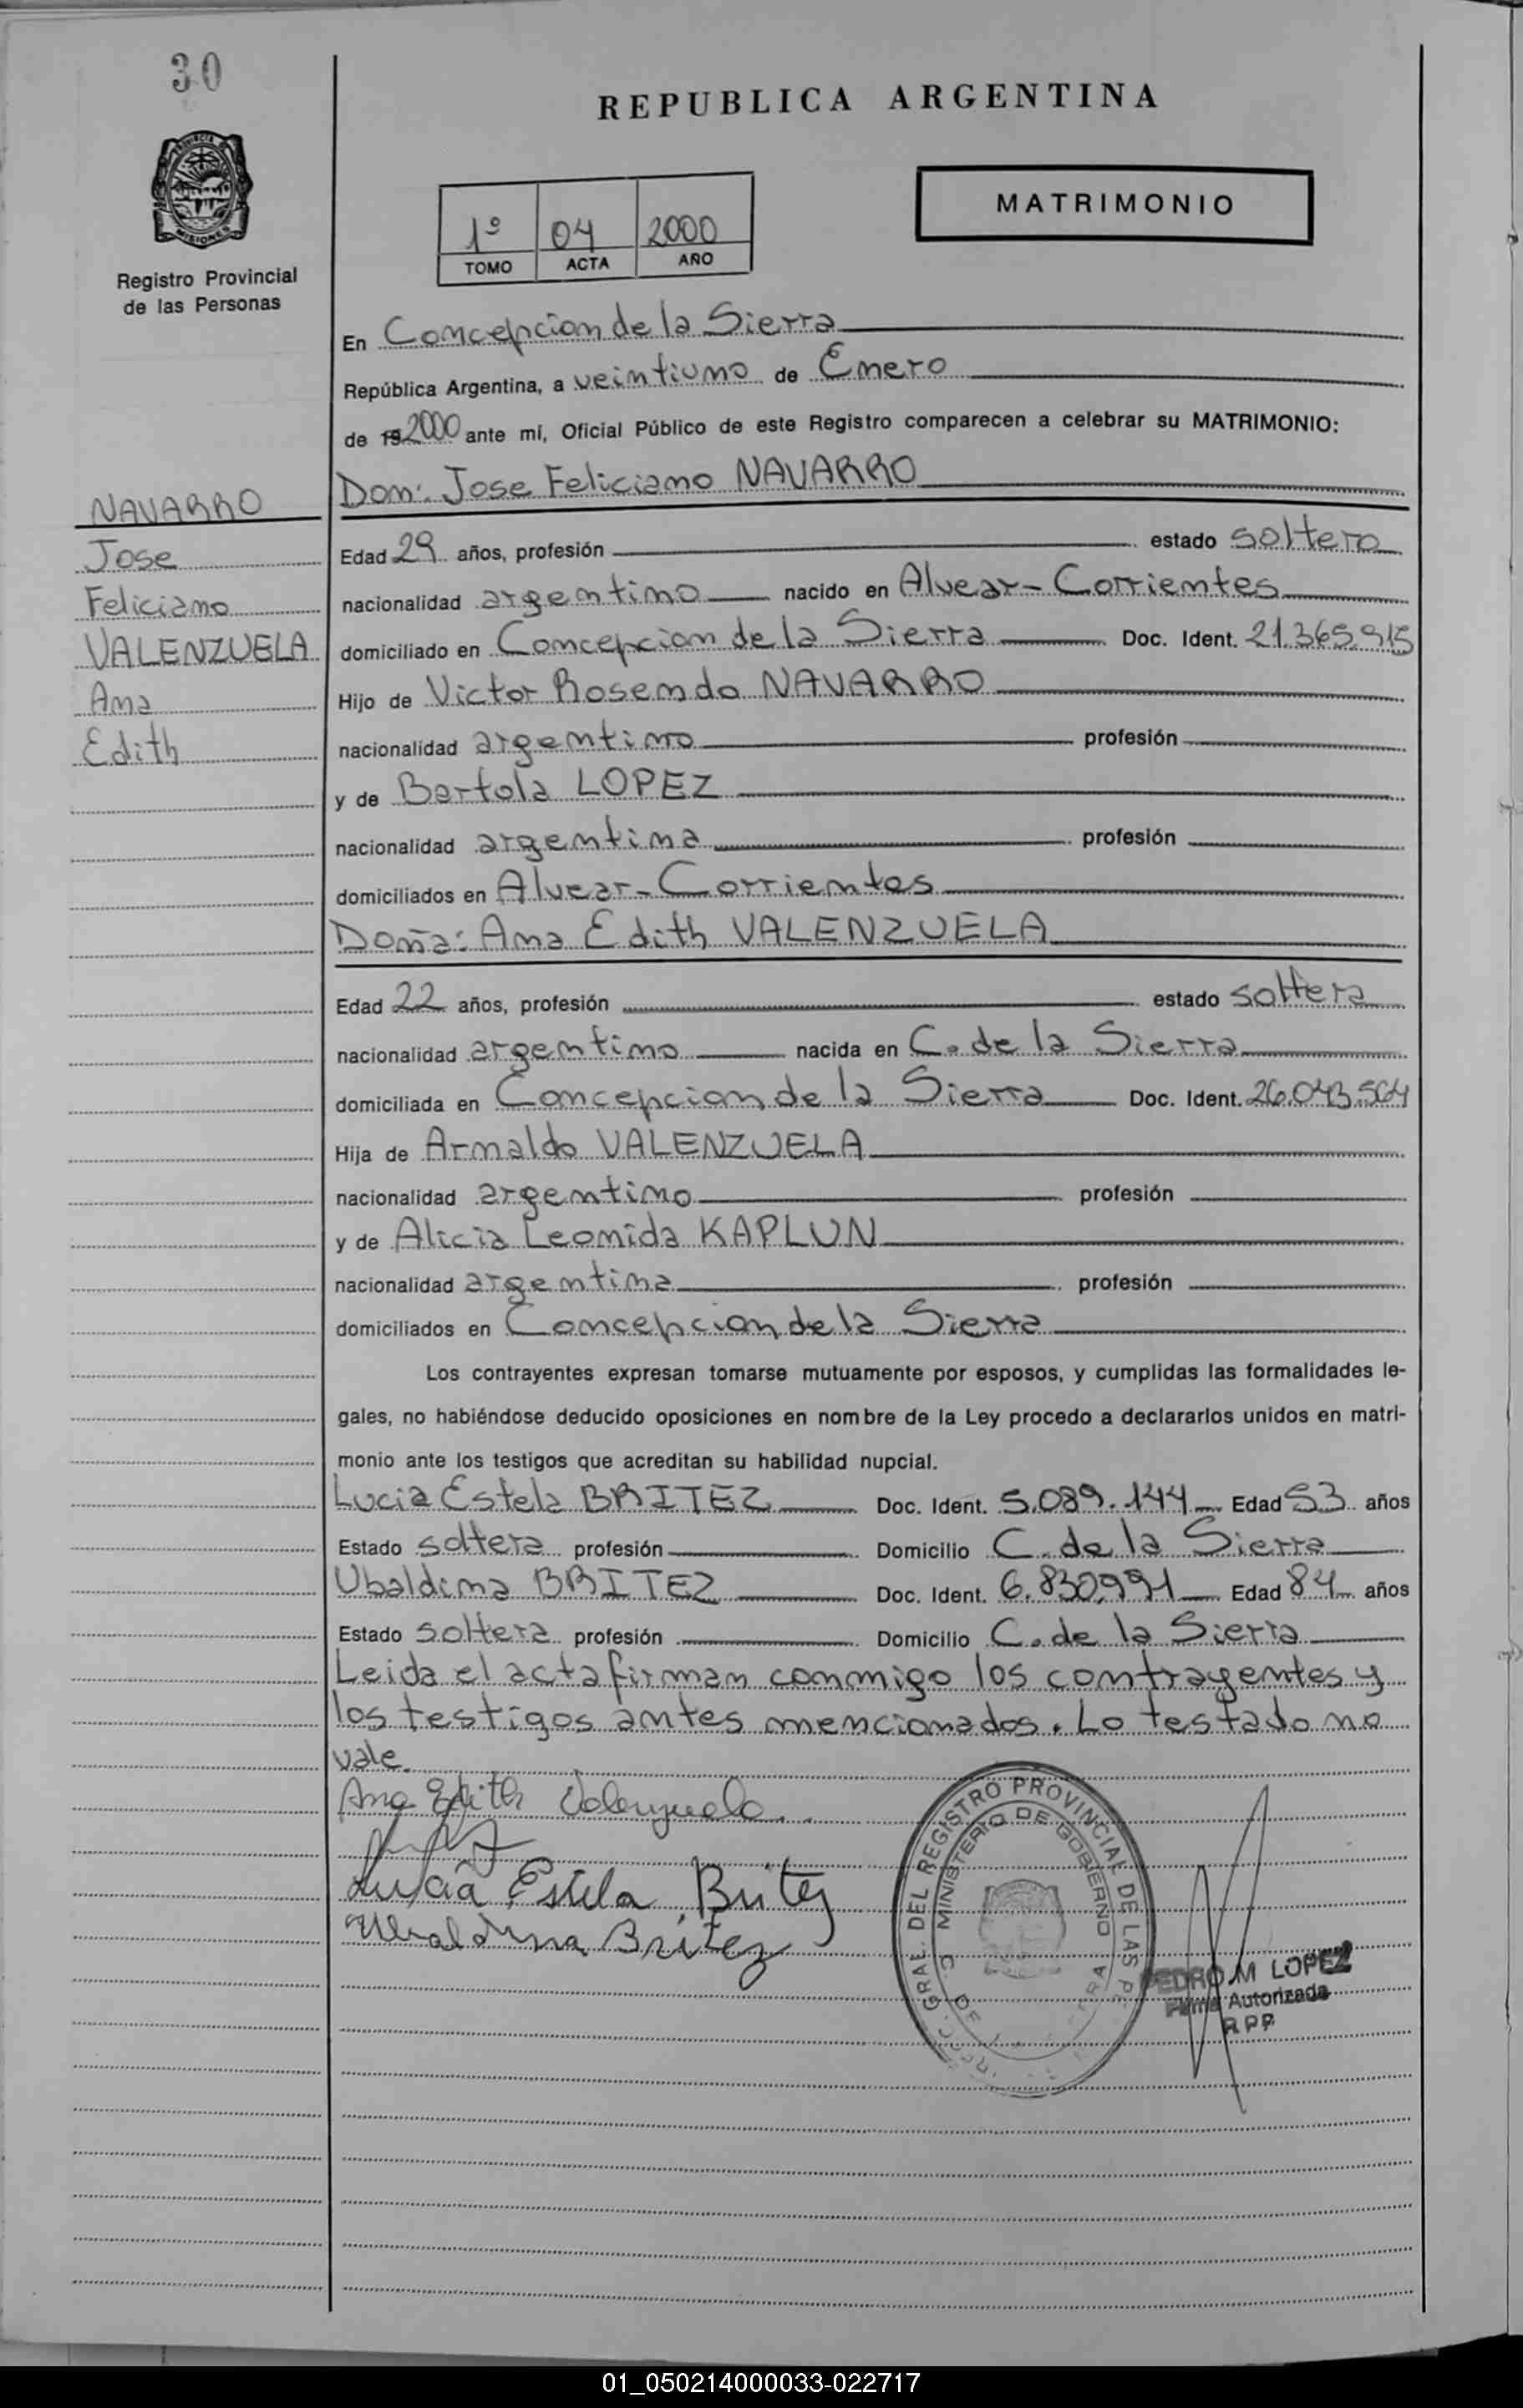 30
REPUBLICA ARGENTINA
MISIONES
Registro Provincial
de las Personas
1º 04 2000
TOMO ACTA AÑO
MATRIMONIO
En Concepcion de la Sierra
República Argentina, a veintiuno de Enero
de 19 2000 ante mí, Oficial Público de este Registro comparecen a celebrar su MATRIMONIO:
Don: Jose Feliciano NAVARRO
NAVARRO
Jose
Feliciano
VALENZUELA
Ana
Edith
Edad 29 años, profesión estado soltero
nacionalidad argentino nacido en Alvear - Corrientes
domiciliado en Concepcion de la Sierra Doc. Ident. 21.365.915
Hijo de Victor Rosendo NAVARRO
nacionalidad argentino profesión
y de Bartola LOPEZ
nacionalidad argentina profesión
domiciliados en Alvear - Corrientes
Doña: Ana Edith VALENZUELA
Edad 22 años, profesión estado soltera
nacionalidad argentino nacida en C. de la Sierra
domiciliada en Concepcion de la Sierra Doc. Ident. 26.043.564
Hija de Arnaldo VALENZUELA
nacionalidad argentino profesión
y de Alicia Leonida KAPLUN
nacionalidad argentina profesión
domiciliados en Concepcion de la Sierra
Los contrayentes expresan tomarse mutuamente por esposos, y cumplidas las formalidades le-
gales, no habiéndose deducido oposiciones en nombre de la Ley procedo a declararlos unidos en matri-
monio ante los testigos que acreditan su habilidad nupcial.
Lucia Estela BRITEZ Doc. Ident. 5.089.144 Edad 53 años
Estado soltera profesión Domicilio C. de la Sierra
Ubaldina BRITEZ Doc. Ident. 6.830.991 Edad 84 años
Estado soltera profesión Domicilio C. de la Sierra
Leida el acta firman conmigo los contrayentes y
los testigos antes mencionados. Lo testado no
vale.
Ana Edith Valenzuela
Lucia Estela Britez
Ubaldina Britez
GRAL. DEL REGISTRO PROVINCIAL DE LAS
MINISTERIO DE GOBIERNO
PEDRO M LOPEZ
Firma Autorizada
R P P
01_050214000033-022717